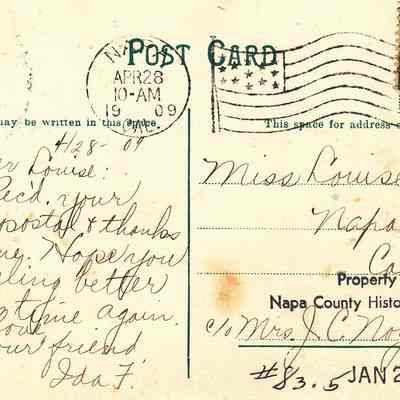 POST CARD
NA
APR 28
10-AM
19 09
CAL.
may be written in this space
This space for address o
4/28-09
er Louise:
Rec'd. your
postal & thanks
Hope you
eling better
time again.
ove
our friend
Ida F.
Miss Louise
Napa
Ca
Property
Napa County Histo
c/o Mrs. J. C. Noy
#83.5 JAN 2